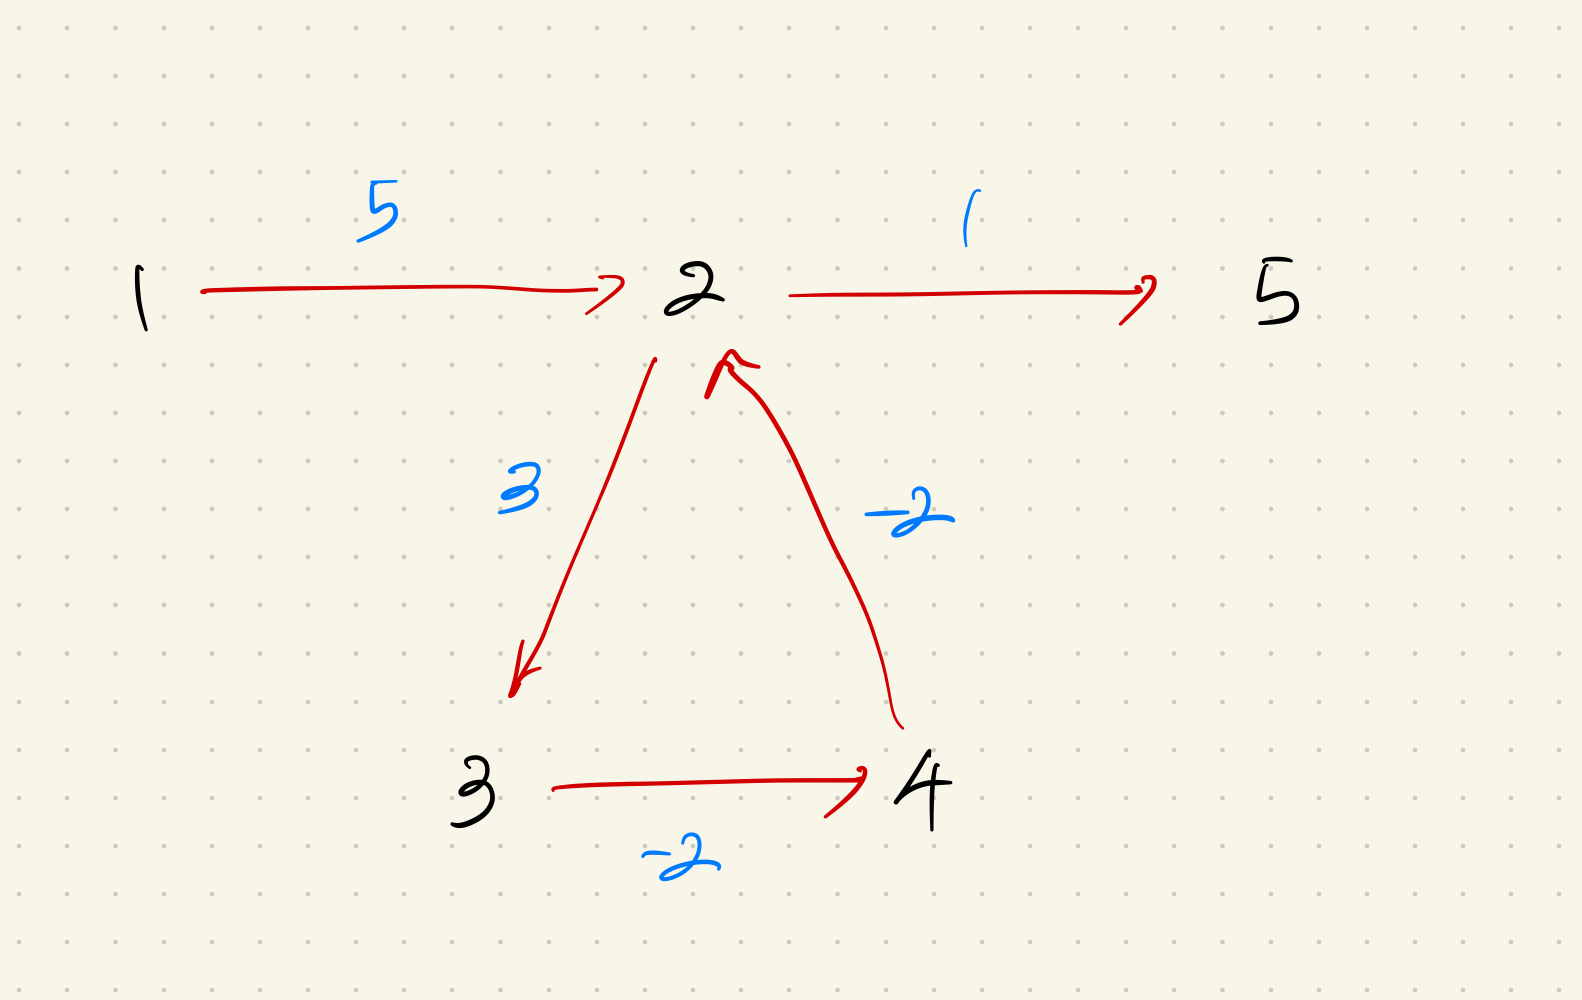 5 1
1 2 5
3 -2
3 4
-2